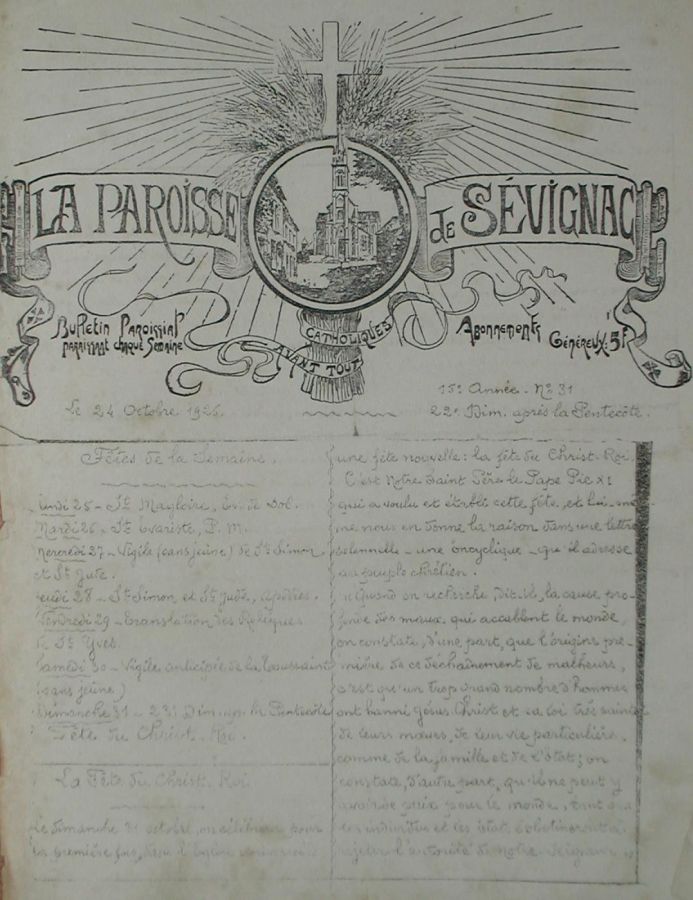 LA PAROISSE
de SÉVIGNAC
Bulletin Paroissial
paraissant chaque Semaine
CATHOLIQUES
AVANT TOUT
Abonnements
Généreux: 5f
15e Année - No 31
Le 24 Octobre 1926.
22e Dim. après la Pentecôte.
Fêtes de la Semaine.
Lundi 25 - St Magloire, Ev. de Dol.
Mardi 26 - St Evariste, P. M.
Mercredi 27 - Vigile (sans jeûne) de St Simon
et St Jude.
Jeudi 28 - St Simon et St Jude, apôtres.
Vendredi 29 - Translation des Reliques
de St Yves.
Samedi 30 - Vigile anticipée de la Toussaint
(sans jeûne)
Dimanche 31 - 23e Dim. ap. la Pentecôte
Fête du Christ-Roi.
La Fête du Christ-Roi
Le dimanche 31 octobre, on célèbrera pour
la première fois, dans l'Eglise
une fête nouvelle: la fête du Christ-Roi.
C'est Notre Saint Père le Pape Pie XI
qui a voulu et établi cette fête, et lui-mê-
me nous en donne la raison dans une lettre
solennelle - une encyclique - qu'il adresse
au peuple chrétien.
"Quand on recherche, dit-il, la cause pro-
fonde des maux qui accablent le monde,
on constate, d'une part, que l'origine pre-
mière de ce déchaînement de malheurs,
c'est qu'un trop grand nombre d'hommes
ont banni Jésus-Christ et sa loi très sainte
de leurs mœurs, de leur vie particulière
comme de la famille et de l'Etat; on
constate, d'autre part, qu'il ne peut y
avoir de paix pour le monde, tant que
les individus et les états s'obstineront à
rejeter l'autorité de Notre-Seigneur